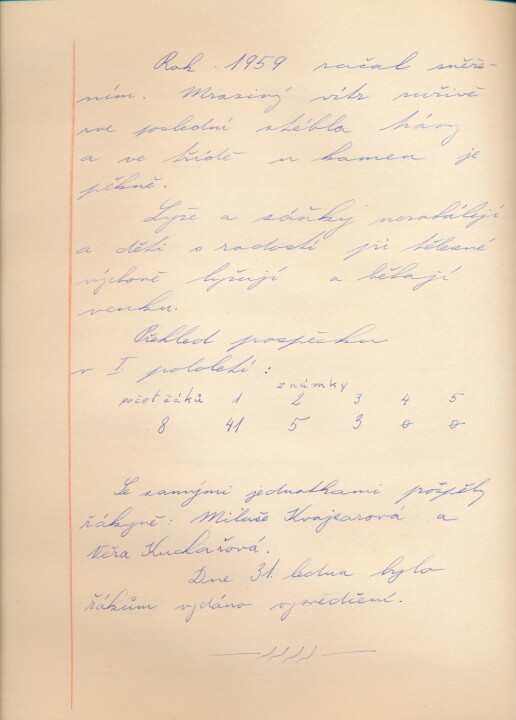 Rok 1959 začal sněže-
ním. Mrazivý vítr zuřivě
rve poslední stébla trávy
a ve třídě u kamen je
pěkně.
Lyže a sáňky nezahálejí
a děti s radostí při tělesné
výchově lyžují a běhají
venku.
Přehled prospěchu
v I pololetí:
známky
počet žáků 1 2 3 4 5
8 41 5 3 0 0
Se samými jednotkami prospěly
žákyně: Miluše Kvajsarová a
Věra Kuchařová.
Dne 31. ledna bylo
žákům vydáno vysvědčení.